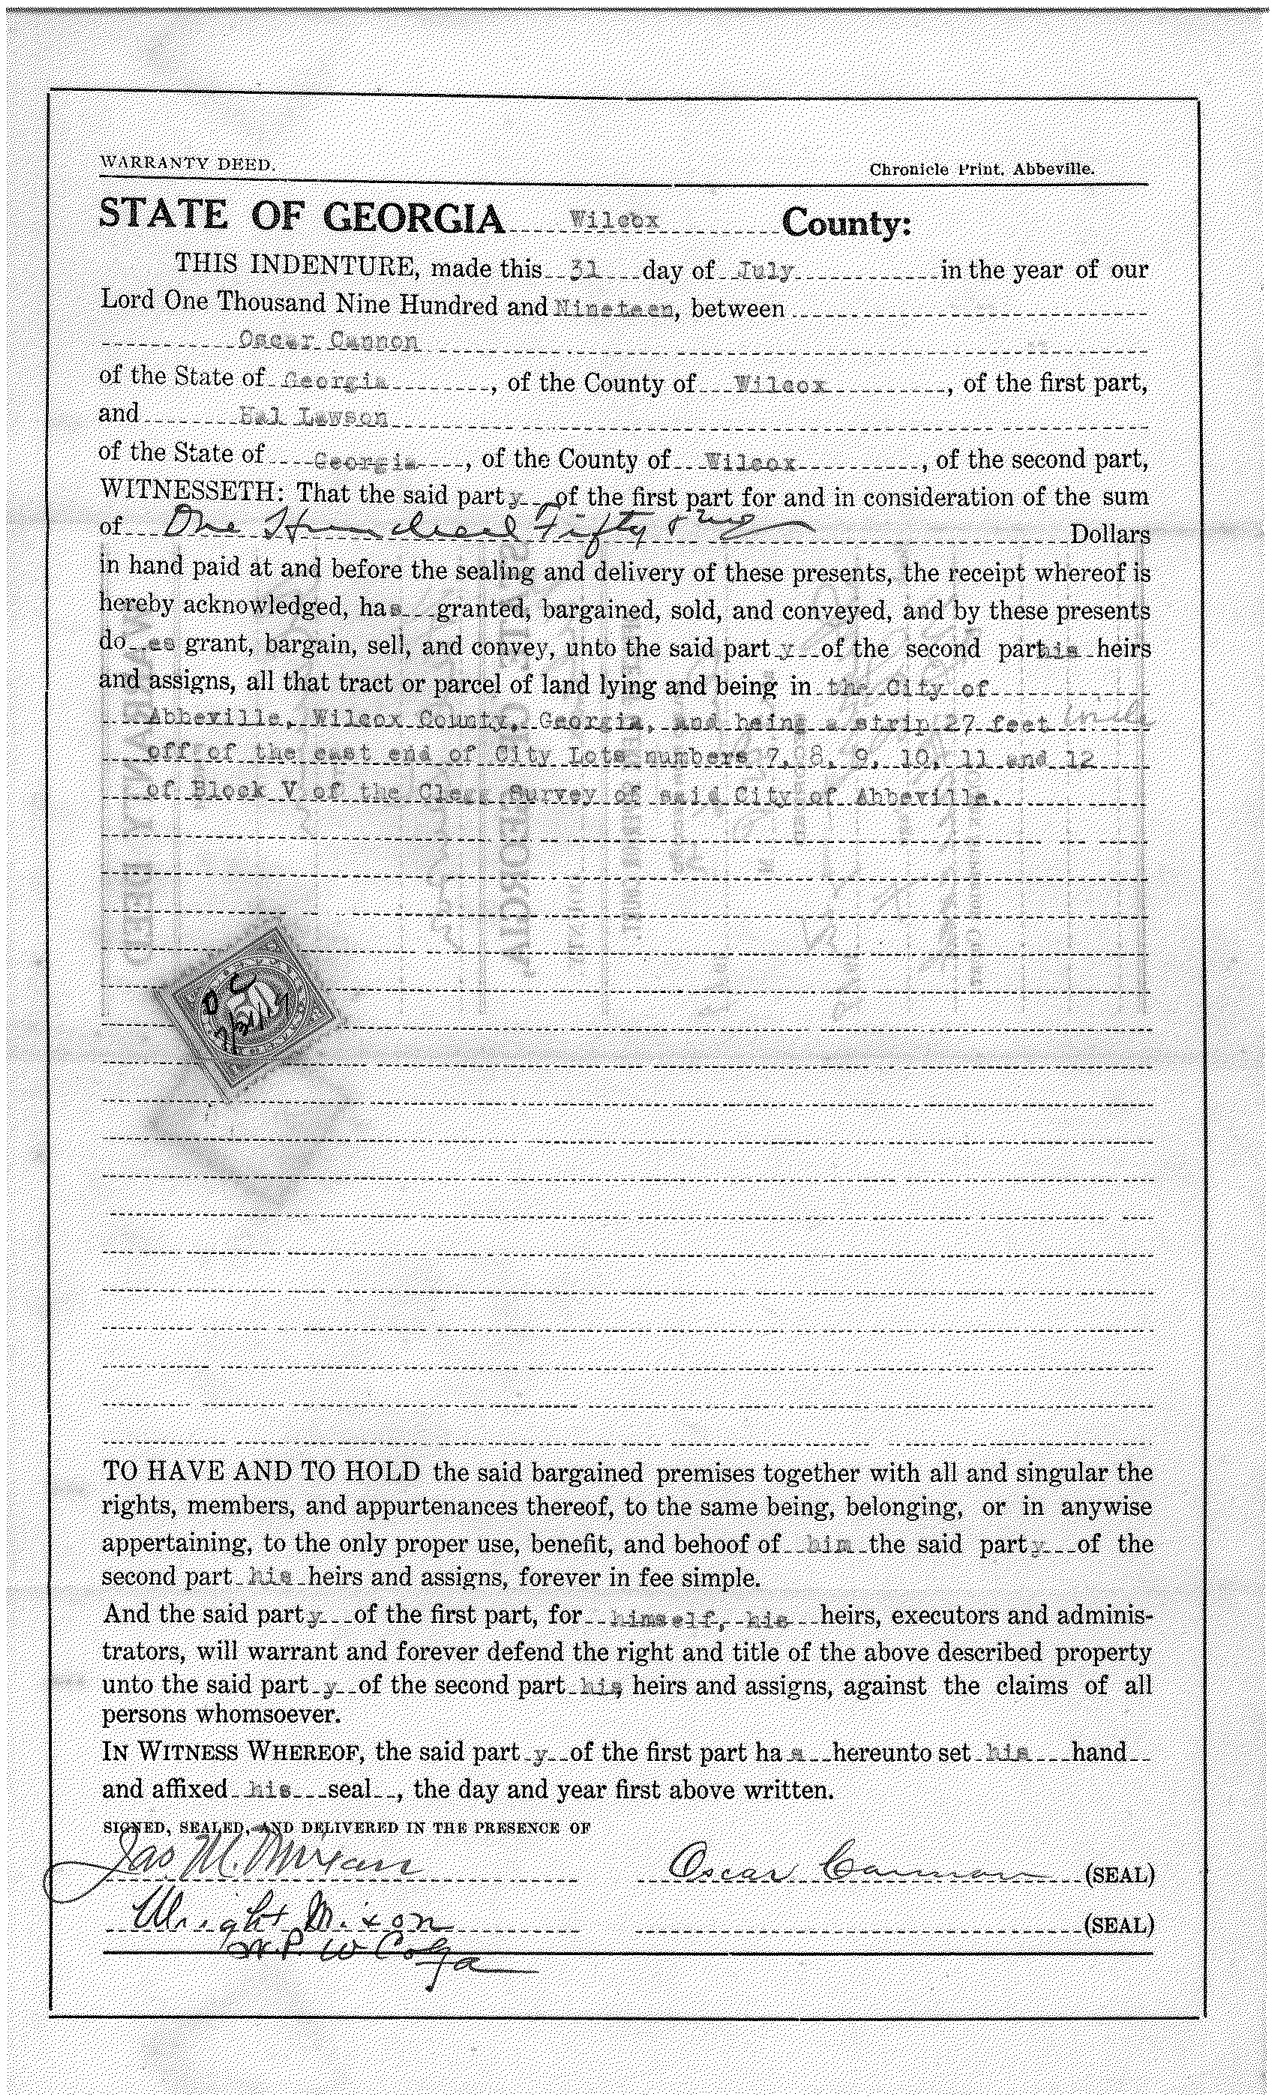 WARRANTY DEED. Chronicle Print, Abbeville.
STATE OF GEORGIA Wilcox County:
THIS INDENTURE, made this 31 day of July in the year of our
Lord One Thousand Nine Hundred and Nineteen, between
Oscar Cannon
of the State of Georgia, of the County of Wilcox, of the first part,
and Hal Lawson
of the State of Georgia, of the County of Wilcox, of the second part,
WITNESSETH: That the said party of the first part for and in consideration of the sum
of One Hundred Fifty & no Dollars
in hand paid at and before the sealing and delivery of these presents, the receipt whereof is
hereby acknowledged, has granted, bargained, sold, and conveyed, and by these presents
do es grant, bargain, sell, and convey, unto the said part y of the second part his heirs
and assigns, all that tract or parcel of land lying and being in the City of
Abbeville, Wilcox County, Georgia, and being a strip 27 feet wide
off of the east end of City Lots numbers 7, 8, 9, 10, 11 and 12
of Block V of the Clegg Survey of said City of Abbeville.
O C
TO HAVE AND TO HOLD the said bargained premises together with all and singular the
rights, members, and appurtenances thereof, to the same being, belonging, or in anywise
appertaining, to the only proper use, benefit, and behoof of him the said party of the
second part his heirs and assigns, forever in fee simple.
And the said party of the first part, for himself, his heirs, executors and adminis-
trators, will warrant and forever defend the right and title of the above described property
unto the said part y of the second part his heirs and assigns, against the claims of all
persons whomsoever.
IN WITNESS WHEREOF, the said part y of the first part has hereunto set his hand
and affixed his seal, the day and year first above written.
SIGNED, SEALED, AND DELIVERED IN THE PRESENCE OF
Jas. M. Oscar Cannon (SEAL)
Wright Mixon (SEAL)
N.P. W Co Ga